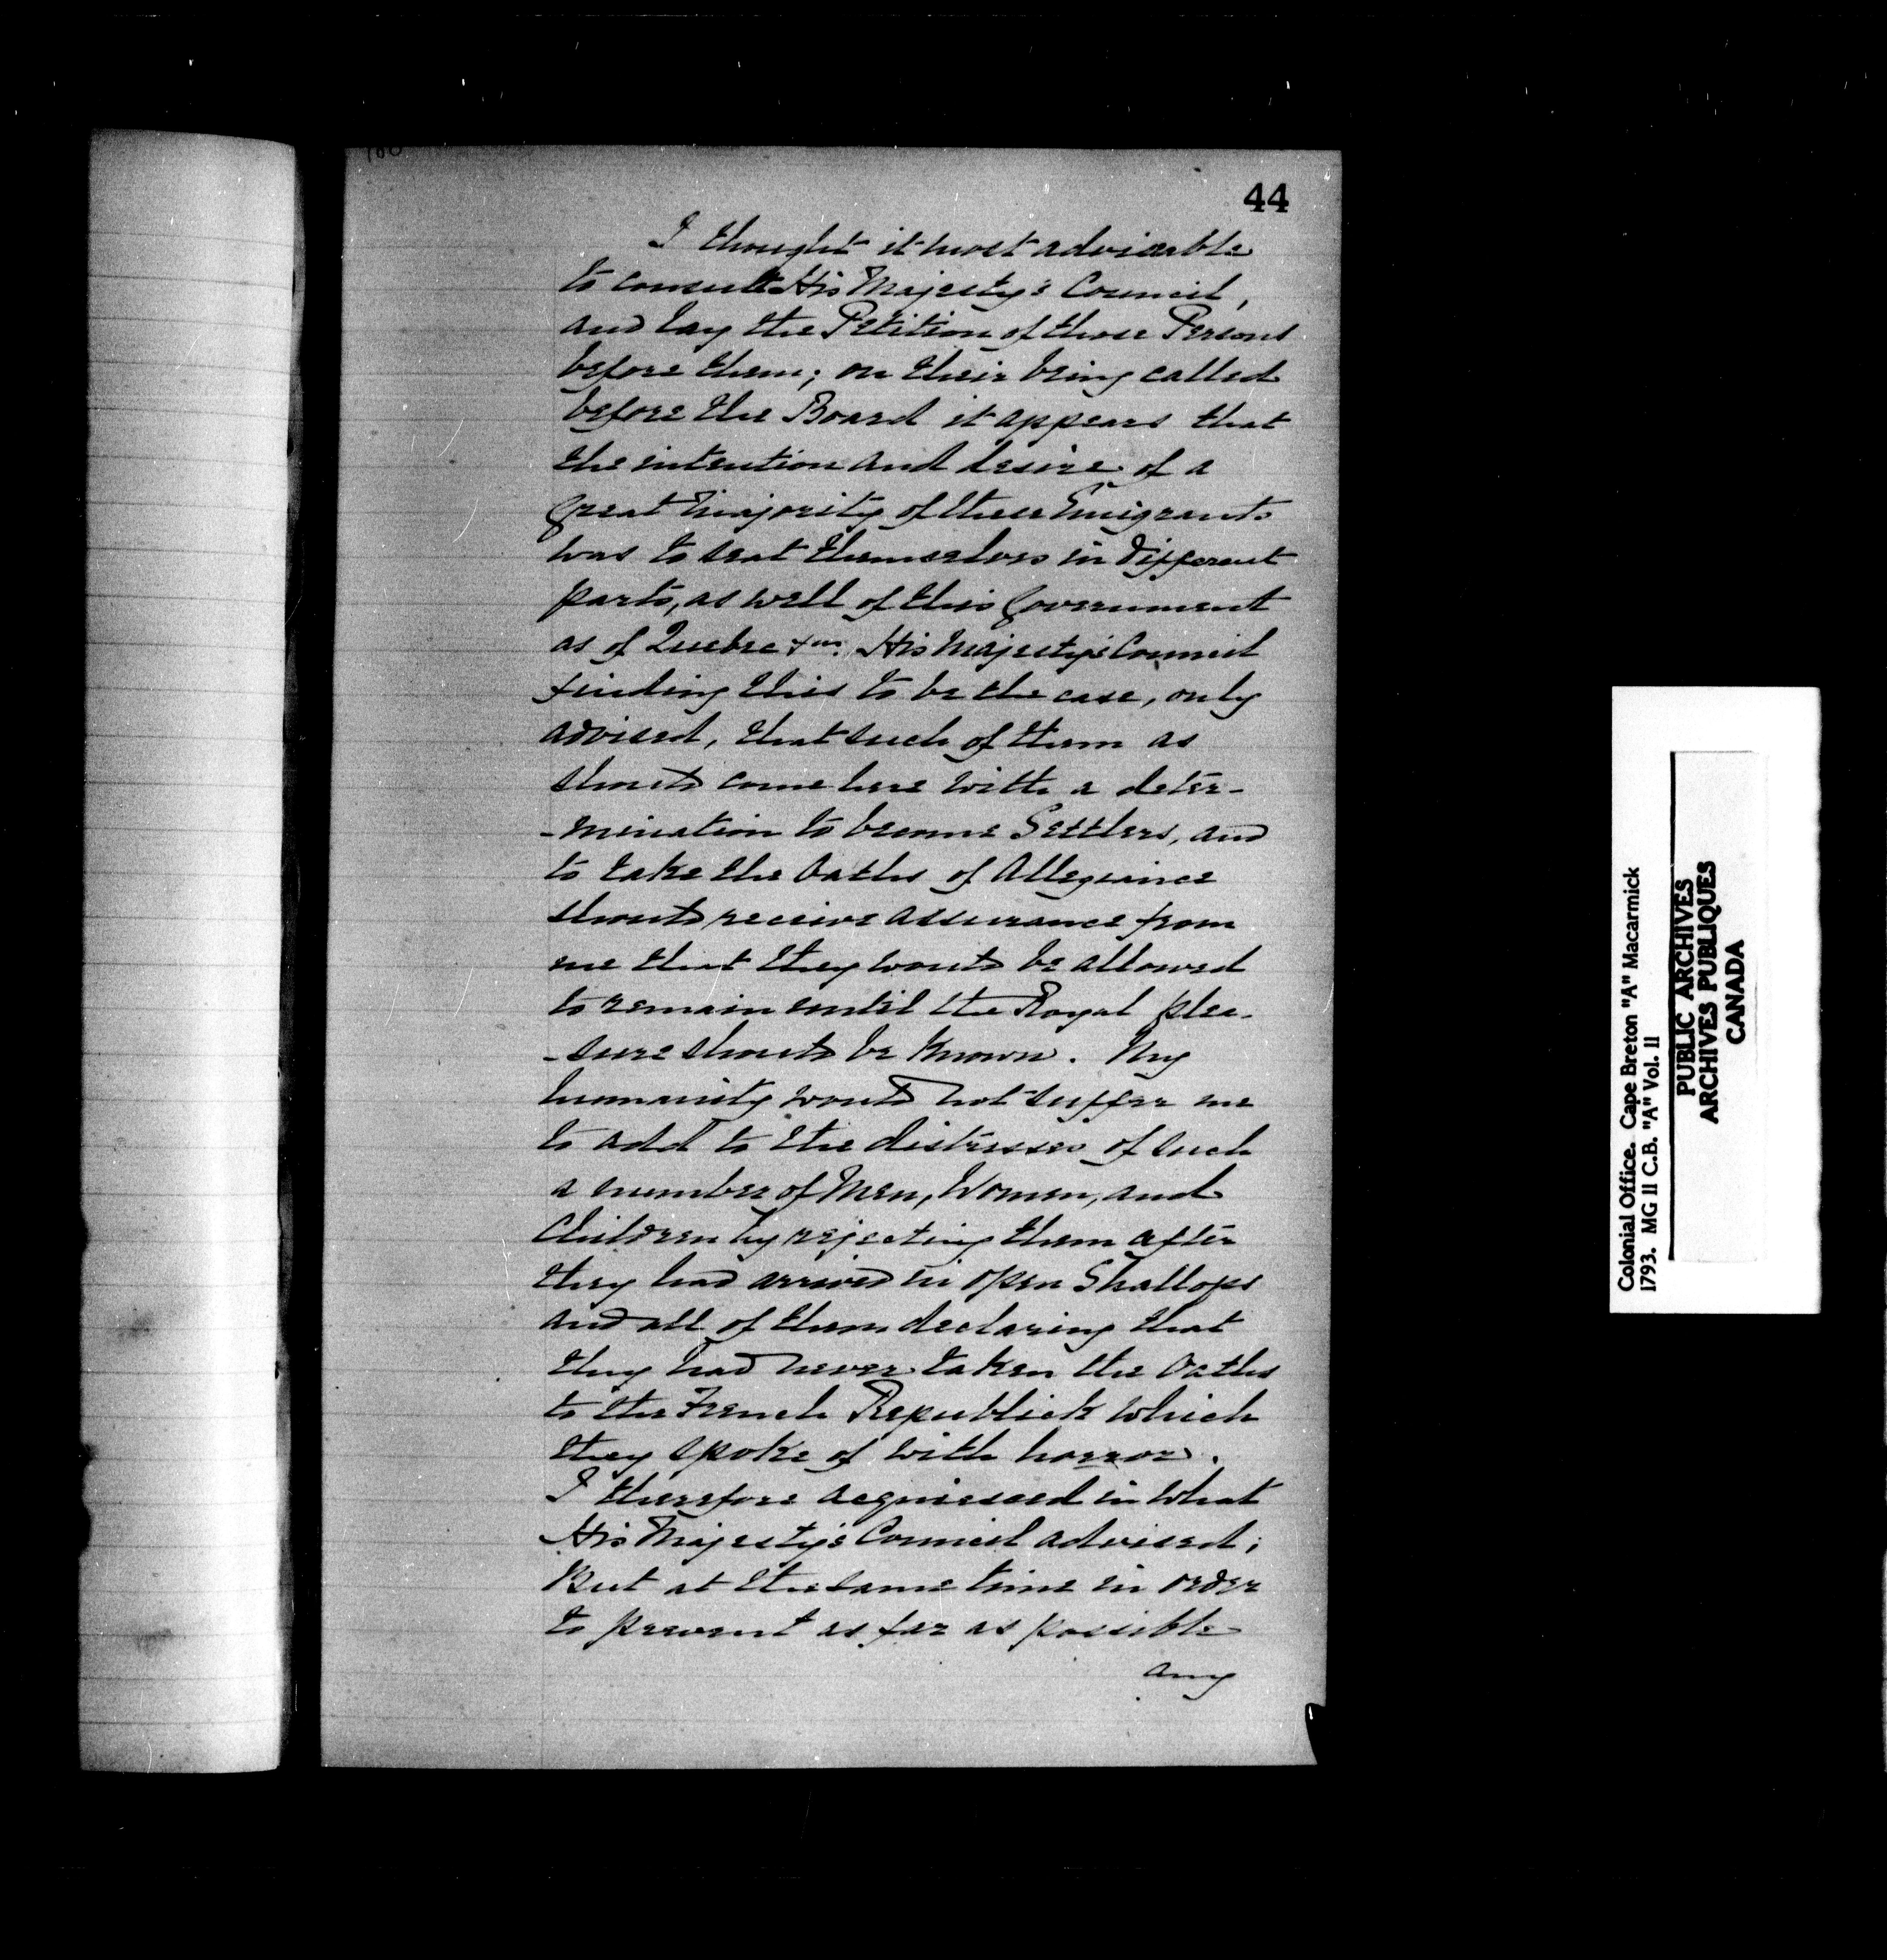 44
I thought it most advisable
to consult His Majesty's Council,
and lay the Petition of those Persons
before them; on their being called
before the Board it appears that
the intention and desire of a
great Majority of these Emigrants
was to seat themselves in different
parts, as well of this Government
as of Quebec &ca. His Majesty's Council
finding this to be the case, only
advised, that such of them as
should come here with a deter-
-mination to become Settlers, and
to take the Oaths of Allegiance
should receive assurance from
me that they would be allowed
to remain until the Royal plea-
-sure should be known. My
humanity would not suffer me
to add to the distresses of such
a number of Men, Women, and
Children by rejecting them after
they had arrived in open Shallops
and all of them declaring that
they had never taken the Oaths
to the French Republick which
they spoke of with horror.
I therefore acquiesced in what
His Majesty's Council advised;
But at the same time in order
to prevent as far as possible
any
Colonial Office. Cape Breton "A" Macarmick
1793. MG 11 C.B. "A" Vol. 11
PUBLIC ARCHIVES
ARCHIVES PUBLIQUES
CANADA